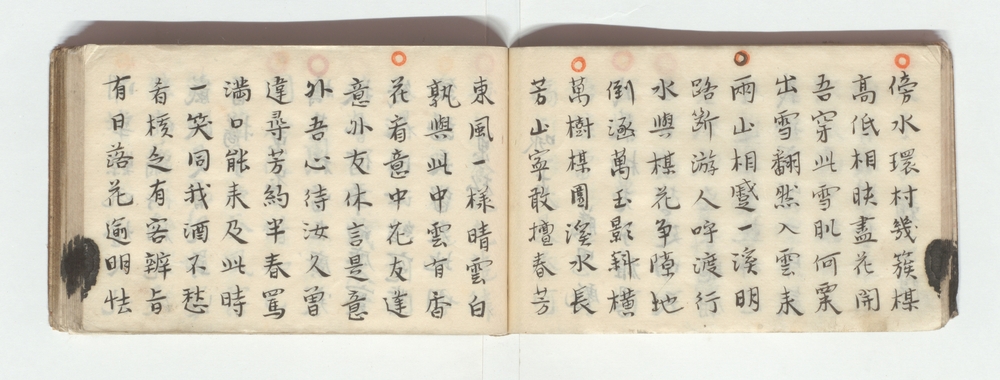 傍水環村幾簇楳
高低相映盡花開
吾穿此雪肌何粟
出雪翻然入雲来
両山相蹙一溪明
路断游人呼渡行
水與楳花争隙地
倒涵萬玉影斜横
萬樹楳圍溪水長
芳山寧敢擅春芳
東風一様晴雲白
孰與此中雲有香
花看意中花友逢
意外友休言是意
外吾心待汝久曽
違尋芳約半春罵
満口能来及此時
一笑同我酒不愁
肴核乏有客辨旨
有日落花逾明怯